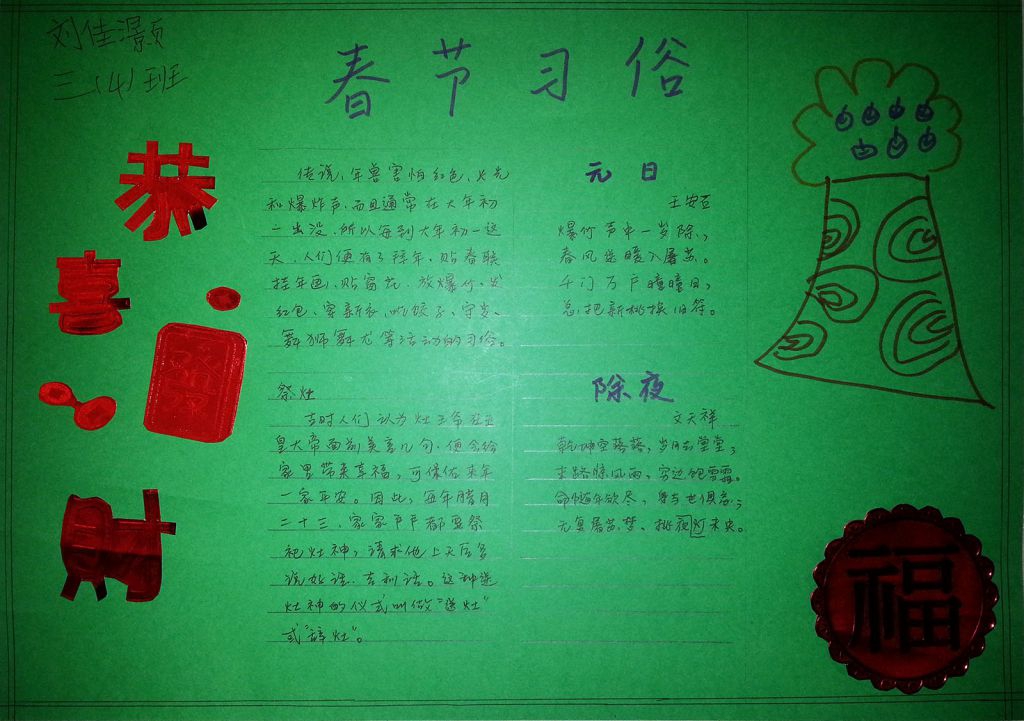 刘佳灏
三(4)班
春节习俗
传说,年兽害怕红色、火光
和爆炸声,而且通常在大年初
一出没,所以每到大年初一这
天,人们便有了拜年、贴春联
挂年画、贴窗花、放爆竹、发
红包、穿新衣、吃饺子、守岁、
舞狮舞龙等活动的习俗。
祭灶
古时人们认为灶王爷在玉
皇大帝面前美言几句,便会给
家里带来幸福,可保佑来年
一家平安。因此,每年腊月
二十三,家家户户都要祭
祀灶神,请求他上天后多
说好话、吉利话。这种送
灶神的仪式叫做“送灶”
或“辞灶”。
元日
王安石
爆竹声中一岁除,
春风送暖入屠苏。
千门万户曈曈日,
总把新桃换旧符。
除夜
文天祥
乾坤空落落,岁月去堂堂;
末路惊风雨,穷边饱雪霜。
命随年欲尽,身与世俱忘;
无复屠苏梦,挑灯夜未央。
恭
喜
發
财
福